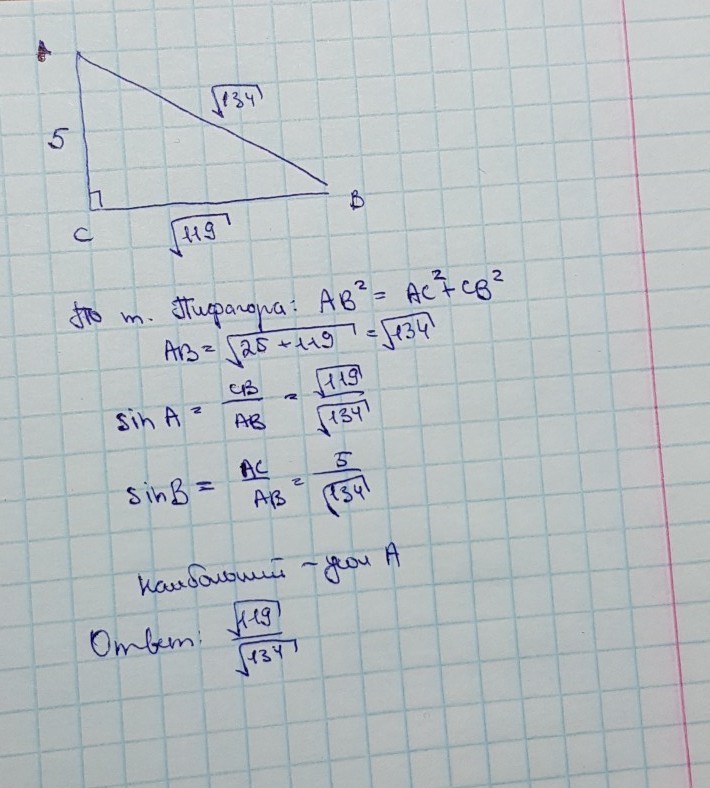 A
√134
5
B
C
√119
По т. Пифагора: AB² = AC² + CB²
AB = √25 + 119 = √134
sin A = CB/AB = √119/√134
sin B = AC/AB = 5/√134
Наибольший - угол A
Ответ: √119/√134